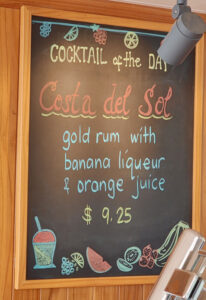 COCKTAIL of the DAY
Costa del Sol
gold rum with
banana liqueur
& orange juice
$ 9.25